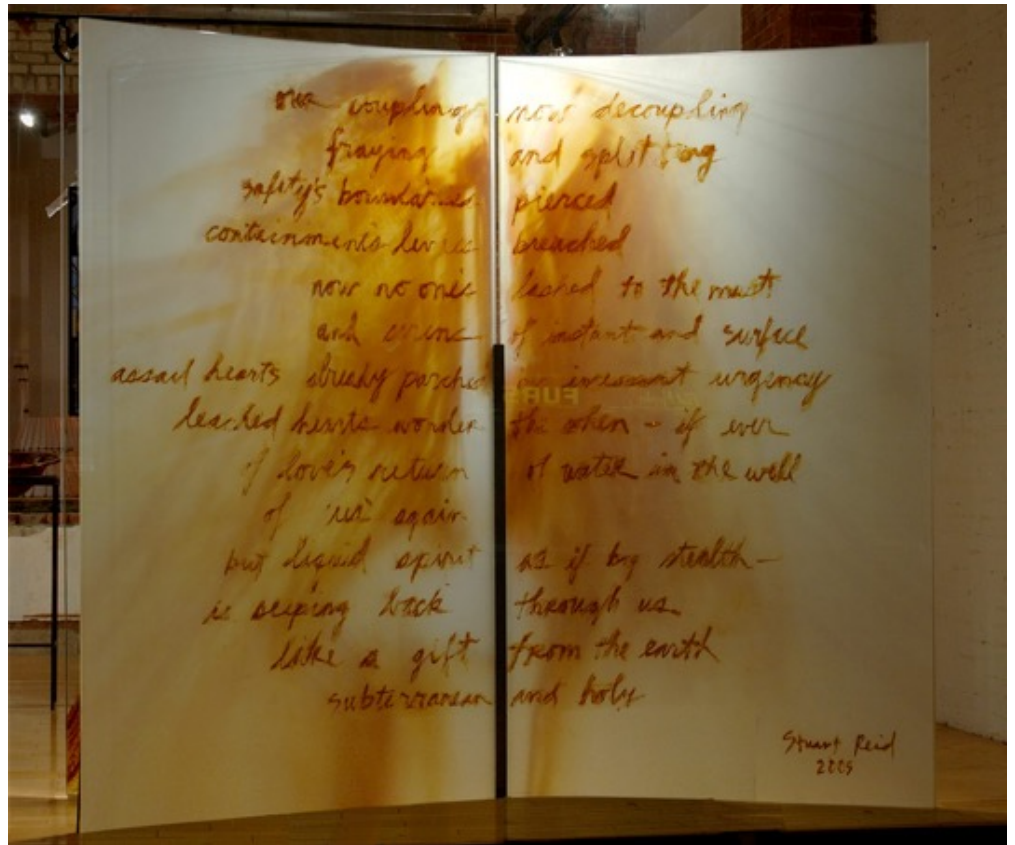 our coupling now decoupling
fraying and splitting
safety's boundaries pierced
containment's levees breached
now no one's lashed to the mast
and of instant and surface
assail hearts already parched by incessant urgency
leached hearts wonder the when - if ever
of love's return of water in the well
of 'us' again
but liquid spirit as if by stealth -
is seeping back through us
like a gift from the earth
subterranean and holy
Stuart Reid
2009
FURS